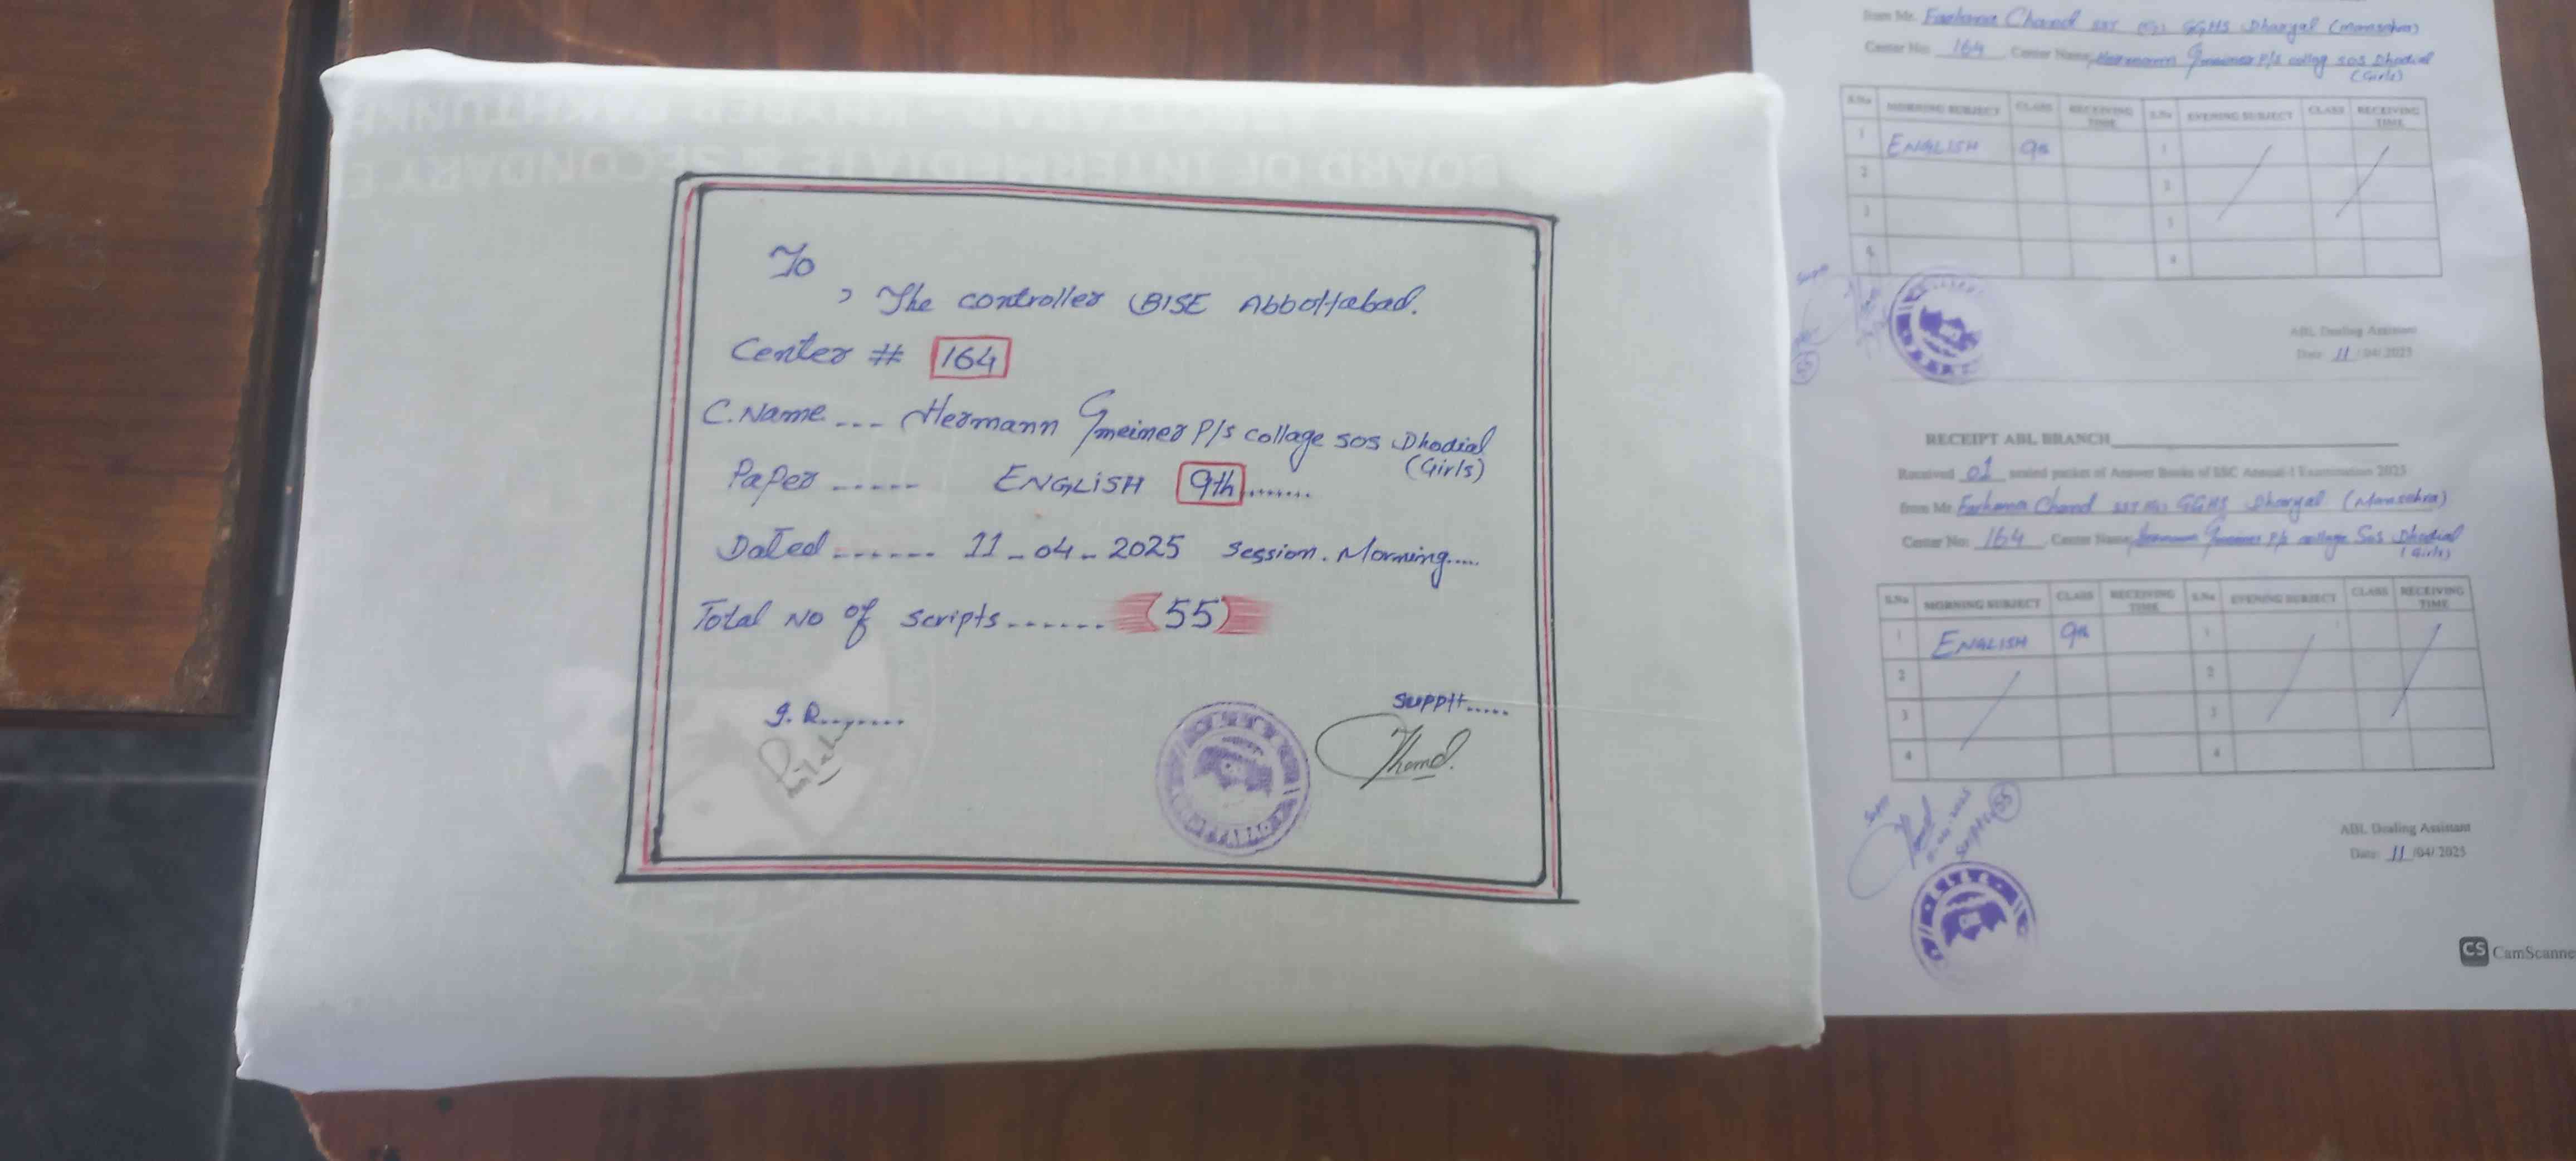 To
, The controller BISE Abbottabad.
Center # 164
C.Name --- Hermann Gmeiner P/s collage sos Dhodial
(Girls)
Paper ----- ENGLISH 9th........
Dated ------ 11-04-2025 Session. Morning....
Total No of scripts ------ (55)
Suppt.....
BOARD OF INTERMEDIATE & SECONDARY E
ABBOTTABAD - KHYBER PAKHTUNKH
from Mr. Farhana Chand SST (G) GGHS Dharyal (Mansehra)
Center No: 164 Center Name: Hermann Gmeiner P/s collage SOS Dhodial
(Girls)
S.No MORNING SUBJECT CLASS RECEIVING TIME S.No EVENING SUBJECT CLASS RECEIVING TIME
1 ENGLISH 9th 1
2 2
3 3
4 4
ABL Dealing Assistant
Date: 11/04/2025
RECEIPT ABL BRANCH
Received 01 sealed packet of Answer Books of SSC Annual-I Examination 2025
from Mr. Farhana Chand SST (G) GGHS Dharyal (Mansehra)
Center No: 164 Center Name: Hermann Gmeiner P/s collage Sos Dhodial
(Girls)
S.No MORNING SUBJECT CLASS RECEIVING TIME S.No EVENING SUBJECT CLASS RECEIVING TIME
1 ENGLISH 9th 1
2 2
3 3
4 4
55
ABL Dealing Assistant
Date: 11/04/2025
CS CamScanne